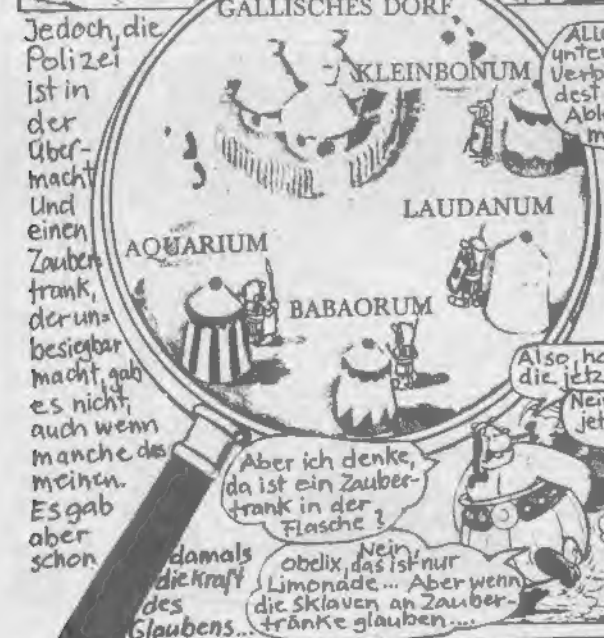 GALLISCHES DORF
Jedoch, die
Polizei
ist in
der
Über-
macht
Und
einen
Zauber
trank,
der un=
besiegbar
macht, gab
es nicht,
auch wenn
manche das
meinen.
Es gab
aber
schon
damals
die Kraft
des
Glaubens...
KLEINBONUM
LAUDANUM
AQUARIUM
BABAORUM
Also,
die jetz
Nein
jet
Aber ich denke,
da ist ein Zauber-
trank in der
Flasche?
Nein,
obelix, das ist nur
Limonade... Aber wenn
die Sklaven an Zauber-
tränke glauben....